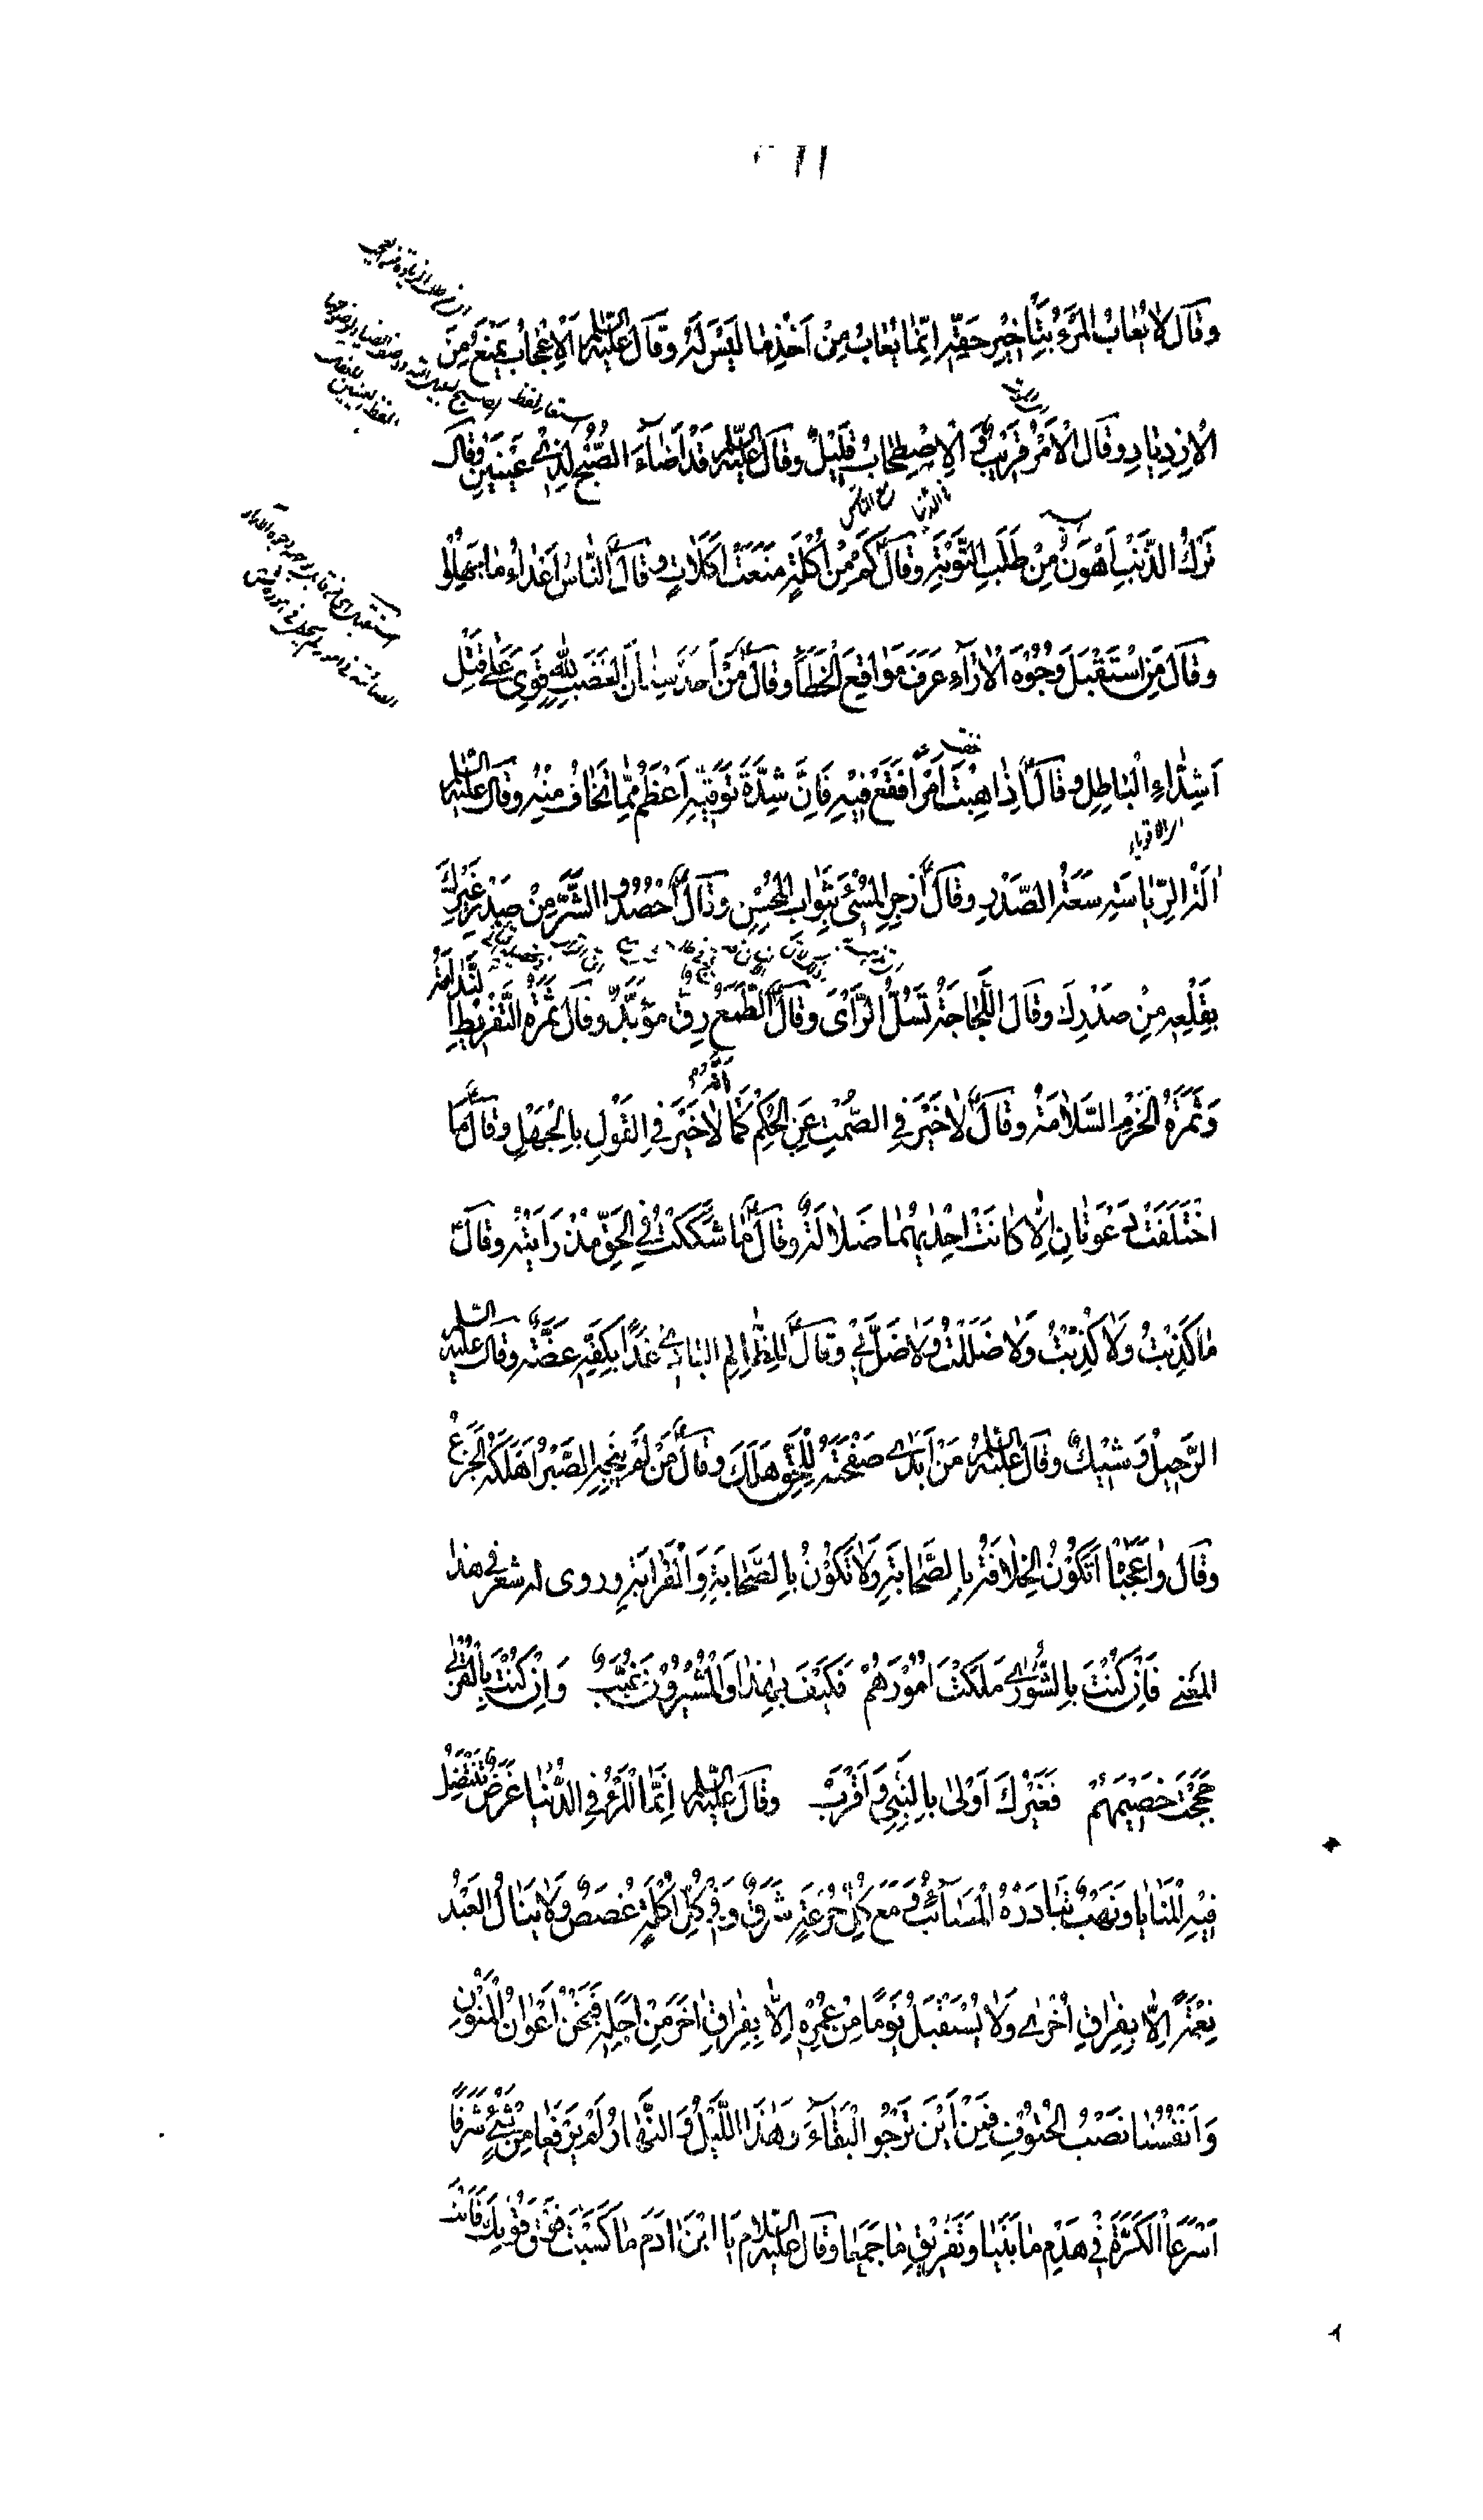 وَقَالَ لَا يُعَابُ الْمَرْءُ بِتَأْخِيْرِ حَقِّهِ اِنَّمَا يُعَابُ مِنْ اَخْذِ مَا لَيْسَ لَهُ وَقَالَ عَلَيْهِ السَّلَامُ اَلْاِعْجَابُ يَمْنَعُ مِنَ
الْاِزْدِيَادِ وَقَالَ الْاَمْرُ قَرِيْبٌ وَ الْاِصْطِحَابُ قَلِيْلٌ وَقَالَ عَلَيْهِ السَّلَامُ قَدْ اَضَآءَ الصُّبْحُ لِذِيْ عَيْنَيْنِ وَقَالَ
تَرْكُ الذَّنْبِ اَهْوَنُ مِنْ طَلَبِ التَّوْبَةِ وَقَالَ كَمْ مِنْ اُكْلَةٍ مَنَعَتْ اَكَلَاتٍ وَ قَالَ النَّاسُ اَعْدَاءُ مَا جَهِلُوْا
وَقَالَ مَنِ اسْتَقْبَلَ وُجُوْهَ الْاٰرَآءِ عَرَفَ مَوَاقِعَ الْخَطَأِ وَقَالَ مَنْ اَحَدَّ سِنَانَ الْغَضَبِ لِلّٰهِ قَوِيَ عَلٰى قَتْلِ
اَشِدَّاءِ الْبَاطِلِ وَ قَالَ اِذَا هِبْتَ اَمْرًا فَقَعْ فِيْهِ فَاِنَّ شِدَّةَ تَوَقِّيْهِ اَعْظَمُ مِمَّا تَخَافُ مِنْهُ وَقَالَ عَلَيْهِ السَّلَامُ
اٰلَةُ الرِّيَاسَةِ سَعَةُ الصَّدْرِ وَقَالَ ازْجُرِ الْمُسِيْٓءَ بِثَوَابِ الْمُحْسِنِ وَقَالَ اُحْصُدِ الشَّرَّ مِنْ صَدْرِ غَيْرِكَ
بِقَلْعِهِ مِنْ صَدْرِكَ وَقَالَ اللَّجَاجَةُ تَسُلُّ الرَّأْيَ وَقَالَ الطَّمَعُ رِقٌّ مُؤَبَّدٌ وَقَالَ ثَمَرَةُ التَّفْرِيْطِ النَّدَامَةُ
وَثَمَرَةُ الْحَزْمِ السَّلَامَةُ وَقَالَ لَا خَيْرَ فِي الصَّمْتِ عَنِ الْحُكْمِ كَمَا اَنَّهُ لَا خَيْرَ فِي الْقَوْلِ بِالْجَهْلِ وَقَالَ مَا
اخْتَلَفَتْ دَعْوَتَانِ اِلَّا كَانَتْ اِحْدٰيهُمَا ضَلَالَةً وَقَالَ مَا شَكَكْتُ فِي الْحَقِّ مُذْ رَاَيْتُهُ وَقَالَ
مَا كَذَبْتُ وَلَا كُذِّبْتُ وَلَا ضَلَلْتُ وَلَا ضُلَّ بِيْ وَقَالَ لِلظَّالِمِ الْبَادِيْ غَدًا بِكَفِّهِ عَضَّةٌ وَقَالَ عَلَيْهِ السَّلَامُ
الرَّحِيْلُ وَشِيْكٌ وَقَالَ عَلَيْهِ السَّلَامُ مَنْ اَبْدٰى صَفْحَتَهُ لِلْحَقِّ هَلَكَ وَقَالَ مَنْ لَمْ يُنْجِهِ الصَّبْرُ اَهْلَكَهُ الْجَزَعُ
وَقَالَ وَاعَجَبَاهُ اَتَكُوْنُ الْخِلَافَةُ بِالصَّحَابَةِ وَلَا تَكُوْنُ بِالصَّحَابَةِ وَالْقَرَابَةِ وروى له شعر في هذا
المعنى فَاِنْ كُنْتَ بِالشُّوْرٰى مَلَكْتَ اُمُوْرَهُمْ فَكَيْفَ بِهٰذَا وَالْمُشِيْرُوْنَ غُيَّبٌ وَاِنْ كُنْتَ بِالْقُرْبٰى
حَجَجْتَ خَصِيْمَهُمْ فَغَيْرُكَ اَوْلٰى بِالنَّبِيِّ وَاَقْرَبُ وَقَالَ عَلَيْهِ السَّلَامُ اِنَّمَا الْمَرْءُ فِي الدُّنْيَا غَرَضٌ تَنْتَضِلُ
فِيْهِ الْمَنَايَا وَنَهْبٌ تُبَادِرُهُ الْمَصَآئِبُ وَمَعَ كُلِّ جُرْعَةٍ شَرَقٌ وَفِيْ كُلِّ اُكْلَةٍ غُصَصٌ وَلَا يَنَالُ الْعَبْدُ
نِعْمَةً اِلَّا بِفِرَاقِ اُخْرٰى وَلَا يَسْتَقْبِلُ يَوْمًا مِنْ عُمُرِهِ اِلَّا بِفِرَاقِ اٰخَرَ مِنْ اَجَلِهِ فَنَحْنُ اَعْوَانُ الْمَنُوْنِ
وَاَنْفُسُنَا نَصْبُ الْحُتُوْفِ فَمِنْ اَيْنَ نَرْجُو الْبَقَآءَ وَهٰذَا اللَّيْلُ وَالنَّهَارُ لَمْ يَرْفَعَا مِنْ شَيْءٍ شَرَفًا
اِلَّا اَسْرَعَا الْكَرَّةَ فِيْ هَدْمِ مَا بَنَيَا وَتَفْرِيْقِ مَا جَمَعَا وَقَالَ عَلَيْهِ السَّلَامُ يَا ابْنَ اٰدَمَ مَا كَسَبْتَ فَوْقَ قُوْتِكَ فَاَنْتَ